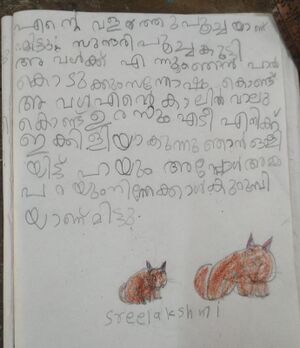 എന്റെ വളർത്തുപൂച്ചയാണ്
മിട്ടു. സുന്ദരിപൂച്ചകുട്ടി
അവൾക്ക് എന്നും ഞാൻ പാൽ
കൊടുക്കും സന്തോഷം കൊണ്ട്
അവൾ എന്റെ കാലിൽ വാലു
കൊണ്ട് ഉരസും എടീ എനിക്ക്
ഇക്കിളിയാകുന്നു ഞാൻ
യിട്ട് പറയും അപ്പോൾ അമ്മ
പറയും നിന്നേക്കാൾ കുറുമ്പി
യാണ് മിട്ടു.
sreelakshmi